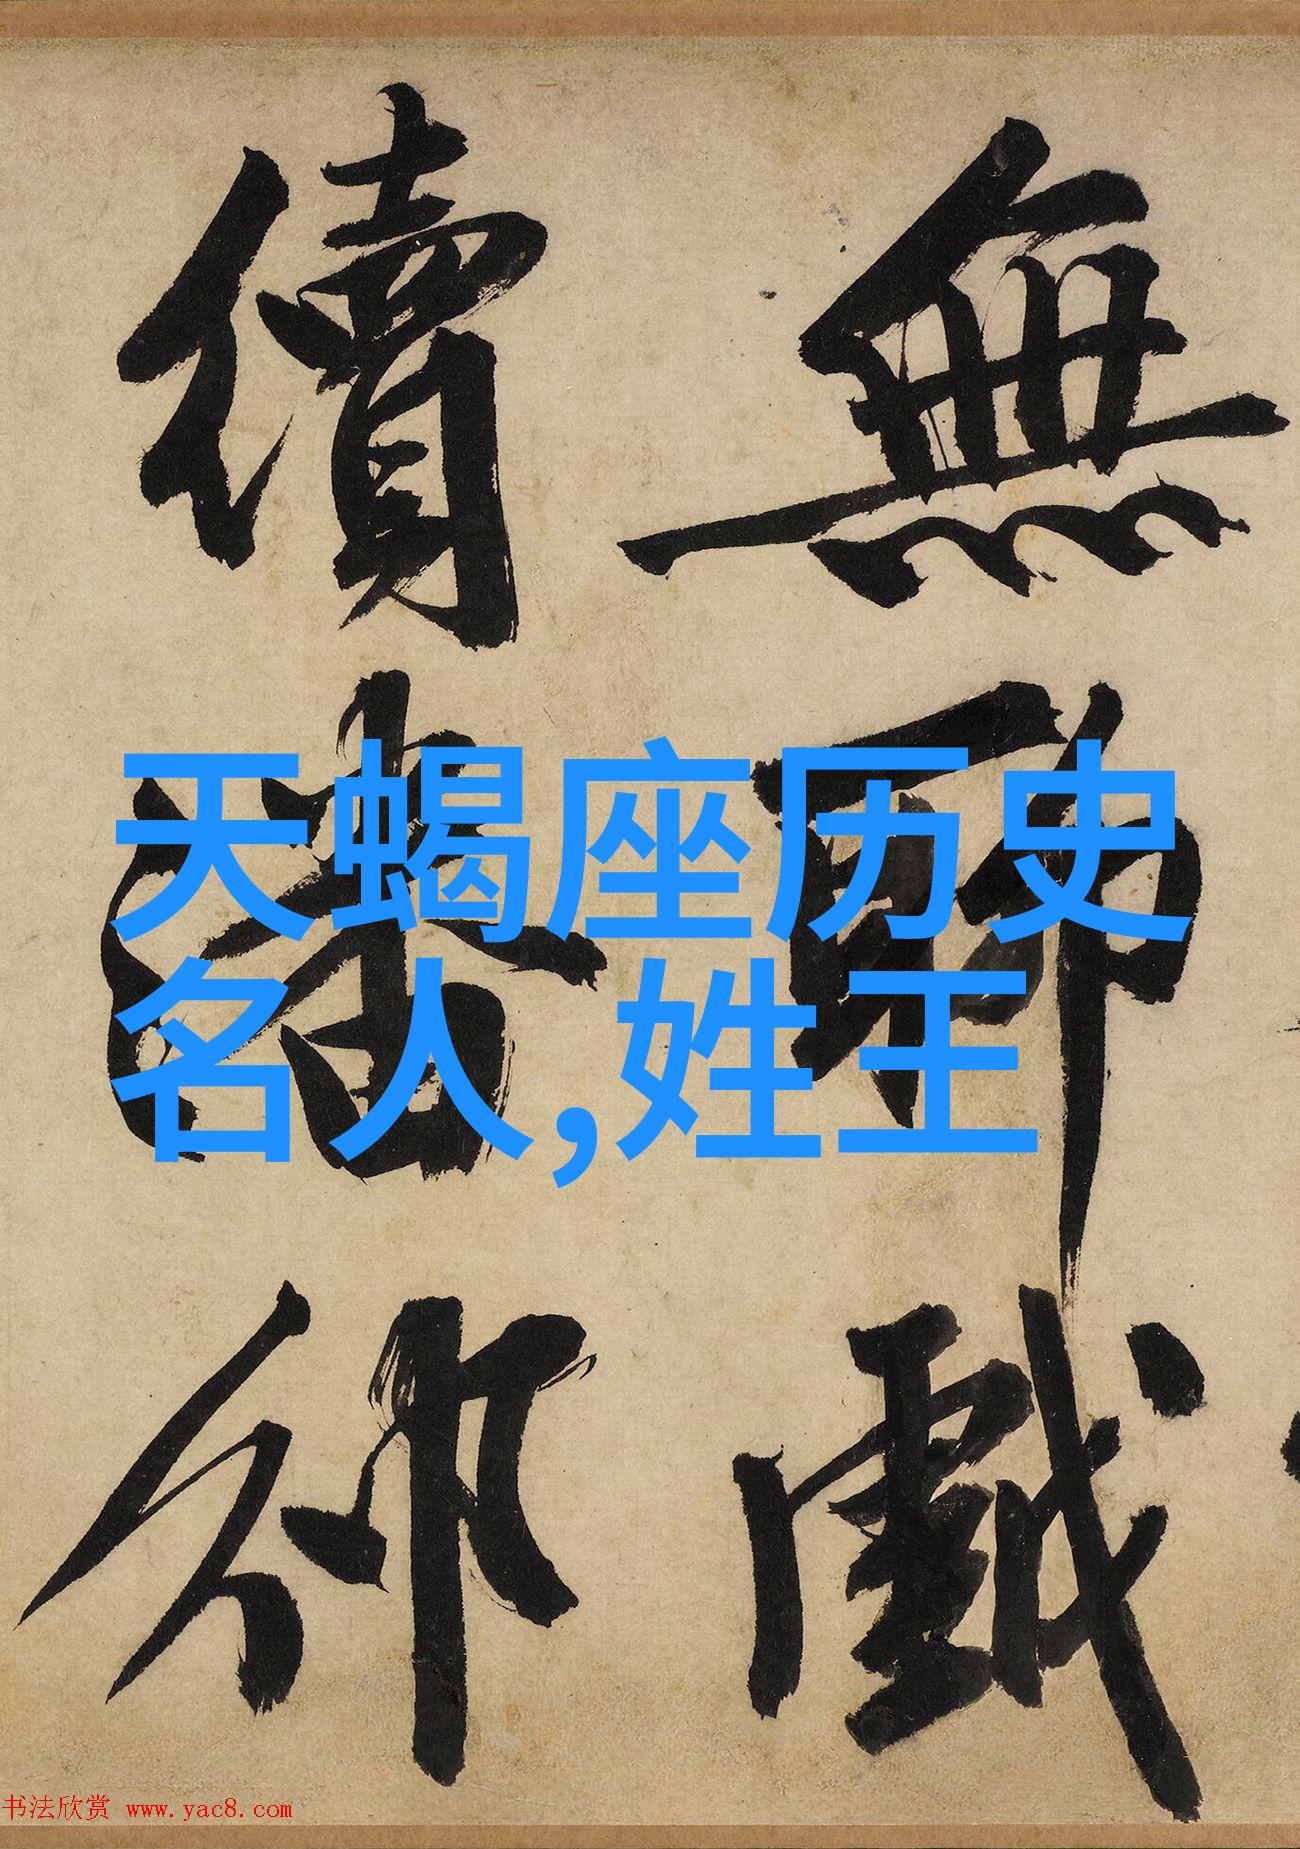 無聊戲
續潘邠
天蝎座历史
名人,姓王
书法欣赏 www.yac8.com